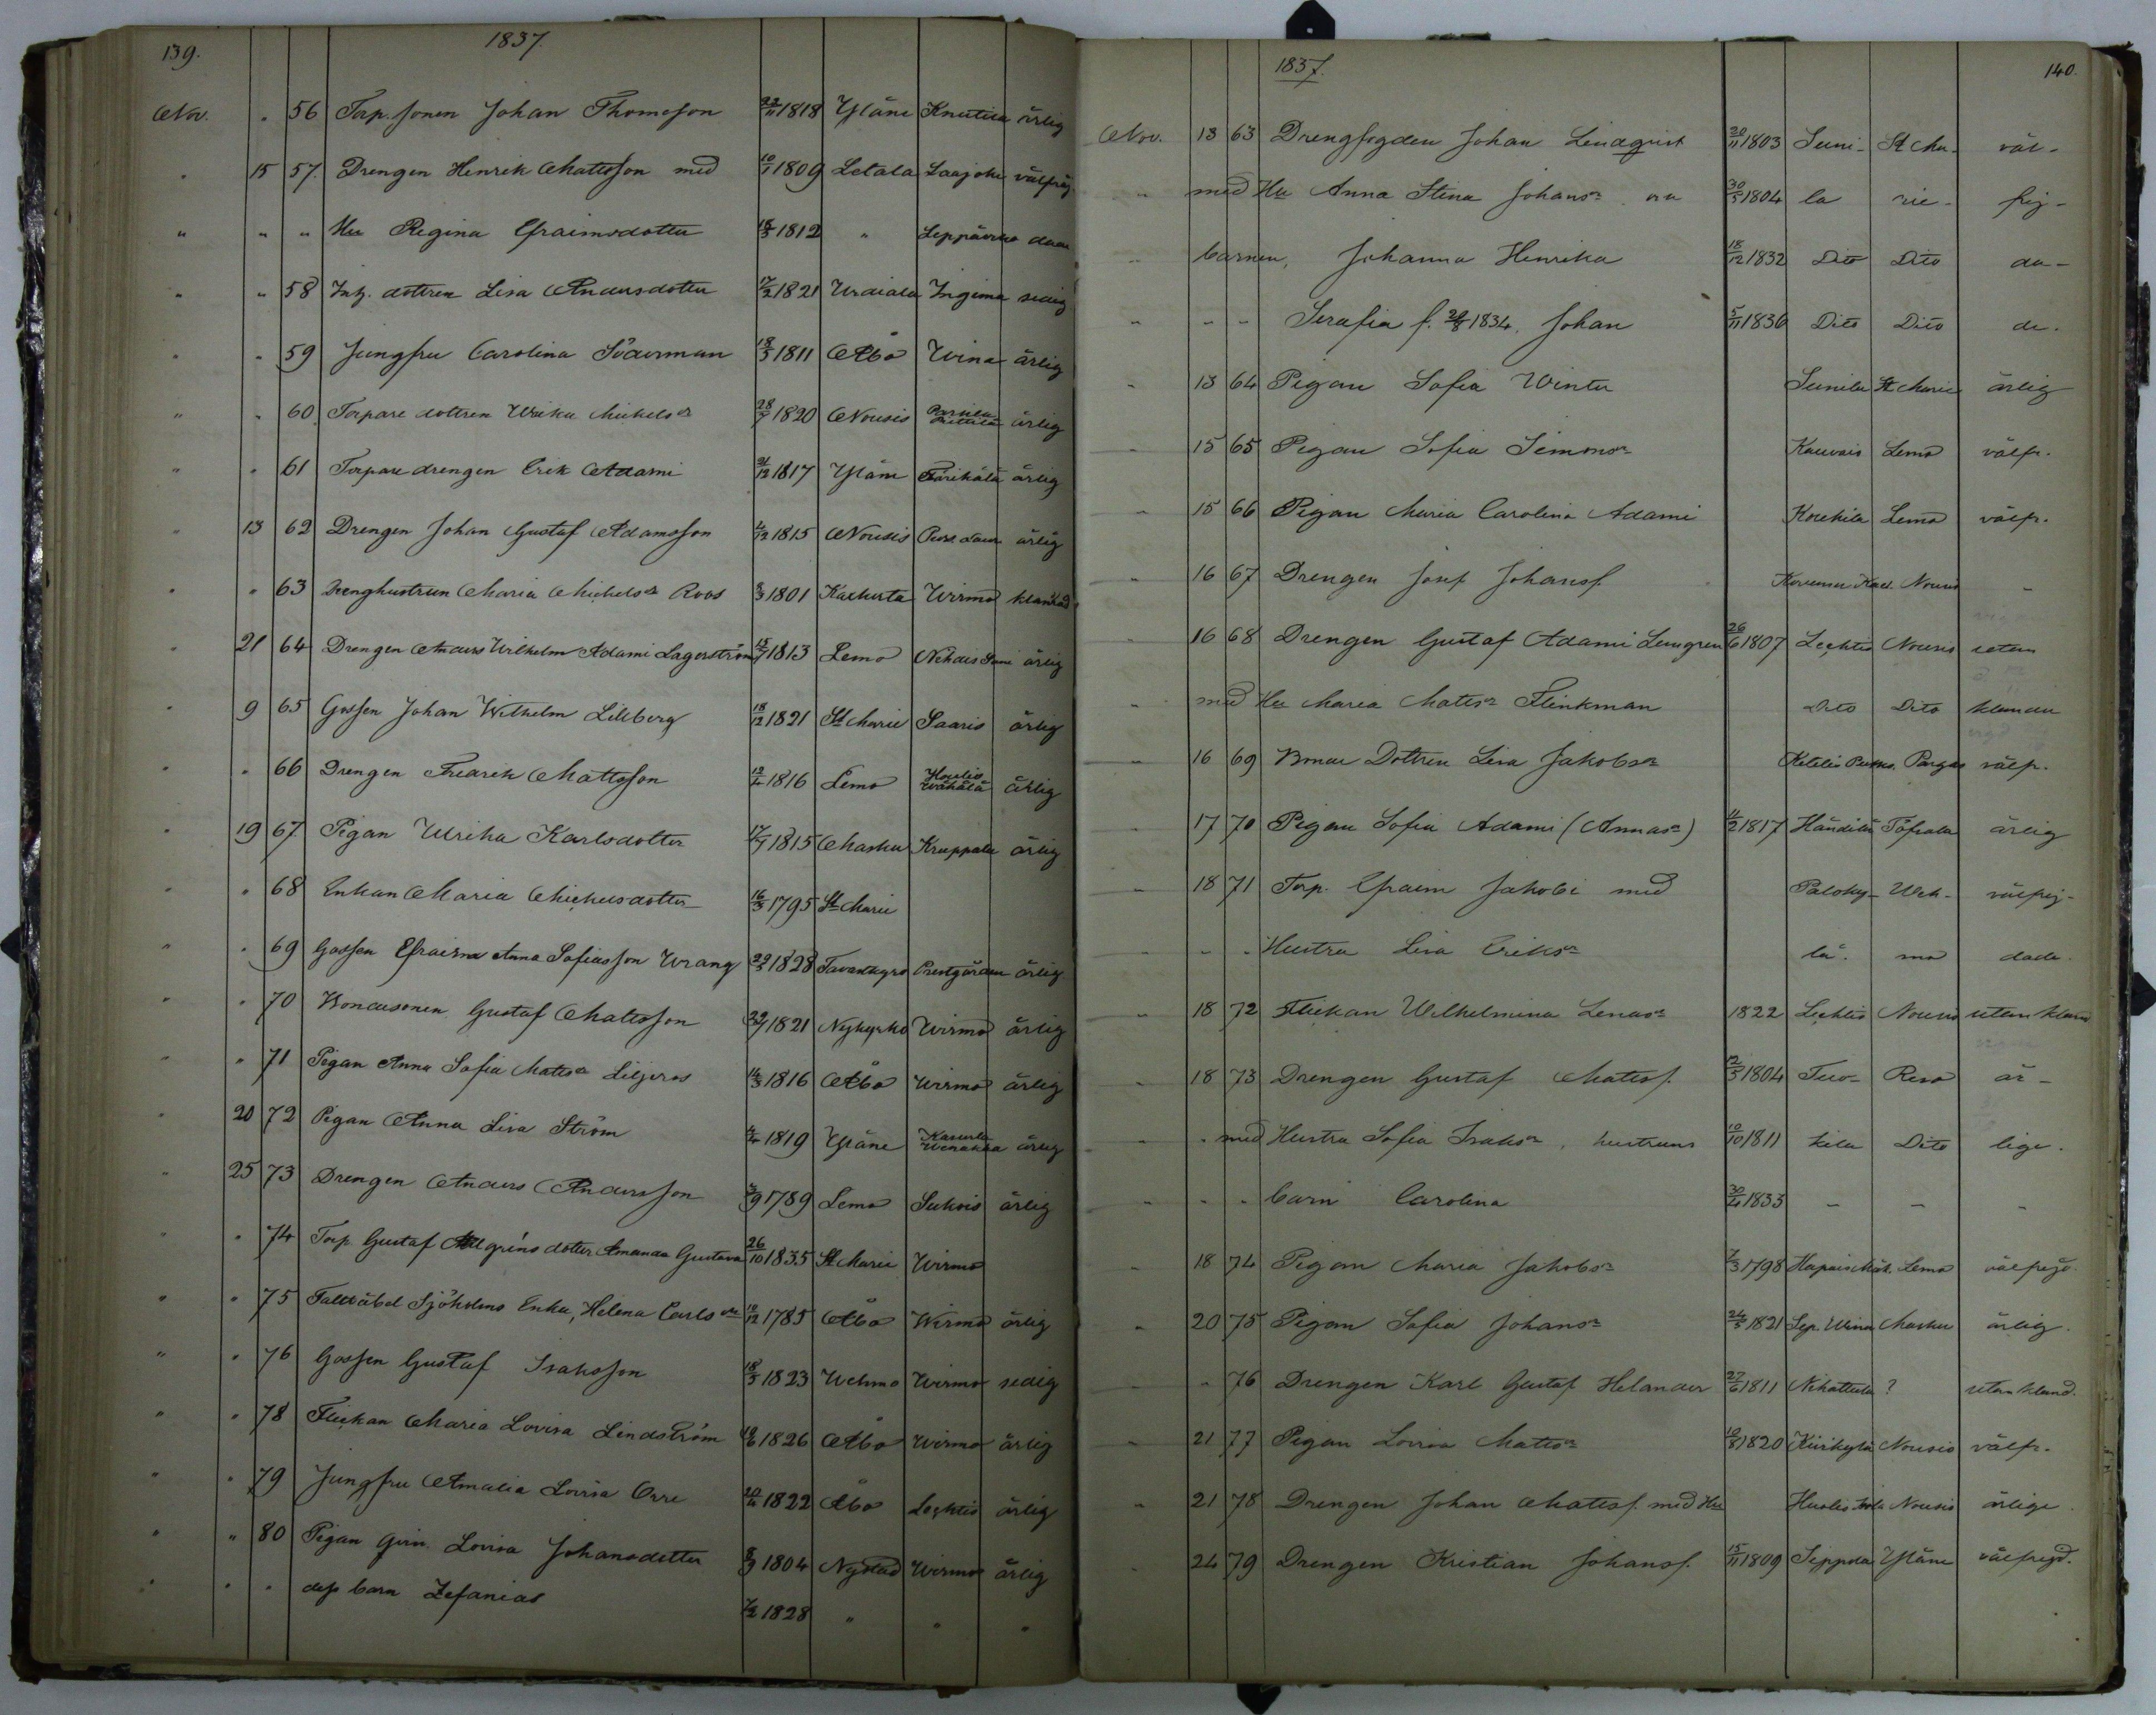 139.
1837.
Nov. " 56 Torp. sonen Johan Thomesson 22/11 1818 Yläne Knutila ärlig
" 15 57. Drengen Henrik Mattsson med 10/1 1809 Letala Laajoki välfräj
" " " Hu Regina Efraimsdotter 18/3 1812 "
" " 58 Inh. dottren Lisa Andersdotter 17/2 1821 Urdiala sedig
" " 59 Jungfru Carolina Söderman 18/5 1811 Åbo Wina ärlig
" " 60. Torpare dottren Ulrika Mickelsdr 28/7 1820 Nousis ärlig
" " 61 Torpare drengen Erik Adami 21/12 1817 Yläne ärlig
" 13 62 Drengen Johan Gustaf Adamsson 4/12 1815 Nousis ärlig
" " 63 Drenghustrun Maria Michelsdr Roos 8/3 1801 Karhusta Wirmo klandrad
" 21 64 Drengen Anders Wilhelm Adami Lagerström 15/7 1813 Lemo ärlig
" 9 65 Gossen Johan Wilhelm Lillberg 18/12 1821 St Marie Saaris ärlig
" " 66 Drengen Fredrik Mattsson 12/4 1816 Lemo ärlig
" 19 67 Pigan Ulrika Karlsdotter 17/7 1815 Masku Kruppala ärlig
" " 68 Enkan Maria Michelsdotter 16/3 1795 St Marie
" " 69 Gossen Efraim Anna Sofiasson Wrang 29/3 1828 Tavastkyro Prestgården ärlig
" " 70 Bondesonen Gustaf Mattsson 22/7 1821 Nykyrko Wirmo ärlig
" " 71 Pigan Anna Sofia Mattsdr Liljeros 14/3 1816 Åbo Wirmo ärlig
" 20 72 Pigan Anna Lisa Ström 4/4 1819 Yläne ärlig
" 25 73 Drengen Anders Andersson 3/9 1789 Lemo Sukois ärlig
" " 74 Torp. Gustaf Allgréns dotter Amanda Gustava 26/10 1835 St Marie Wirmo
" " 75 Fältväbel Sjöholms Enka, Helena Carlsdr 10/12 1785 Åbo Wirmo ärlig
" " 76 Gossen Gustaf Isaksson 18/5 1823 Wehmo Wirmo sedig
" " 78 Flickan Maria Lovisa Lindström 19/6 1826 Åbo Wirmo ärlig
" " 79 Jungfru Amalia Lovisa Orre 20/4 1822 Åbo Lechtis ärlig
" " 80 Pigan Lovisa Johansdotter 8/9 1804 Nystad Wirmo ärlig
" " " dess barn Zefanias 7/2 1828 " " "
1837.
140.
Nov. 13 63 Drengfogden Johan Lindqvist 20/11 1803 Suni- St Ma- väl-
" med Hu Anna Stina Johansdr 30/5 1804 la rie- frej-
" barnen, Johanna Henrika 18/12 1832 Dito Dito da-
" - - Serafia f. 24/8 1834. Johan 5/11 1836 Dito Dito de.
" 13 64 Pigan Sofia Winter Sunila St Marie ärlig
" 15 65 Pigan Sofia Simonsdr Kauvais Lemo välfr.
" 15 66 Pigan Maria Carolina Adami Koukila Lemo välfr.
" 16 67 Drengen Josef Johansf. Nousis -
" 16 68 Drengen Gustaf Adami Lemgren 26/6 1807 Lechtis Nousis utan
" med Hu Maria Mattsdr Flinkman Dito Dito klander
" 16 69 Bonde Dottren Lisa Jakobsdr Pargas välfr.
" 17 70 Pigan Sofia Adami (Annasdr) 11/2 1817 Händilä Töfsala ärlig
" 18 71 Torp. Efraim Jakobi med Paloky- Weh- välfrej-
" - - Hustru Lisa Eriksdr lä. mo dade.
" 18 72 Flickan Wilhelmina Lenasdr 1822 Lechtis Nousis utan kland
" 18 73 Drengen Gustaf Mattsf. 12/3 1804 Tuo- Reso är-
" " med Hustru Sofia Isaksdr, hustruns 10/10 1811 kila Dito lige.
" - - barn Carolina 30/4 1833 - - -
" 18 74 Pigan Maria Jakobsdr 7/3 1798 Lemo välfrejd.
" 20 75 Pigan Sofia Johansdr 24/5 1821 Masku ärlig.
" " 76 Drengen Karl Gustaf Helander 27/6 1811 Nihattula ? utan kland.
" 21 77 Pigan Lovisa Mattsdr 10/8 1820 Kiirkylä Nousis välfr.
" 21 78 Drengen Johan Mattsf. med Hu Nousis ärlige
" 24 79 Drengen Kristian Johansf. 15/11 1809 Seppola Yläne välfrejd.